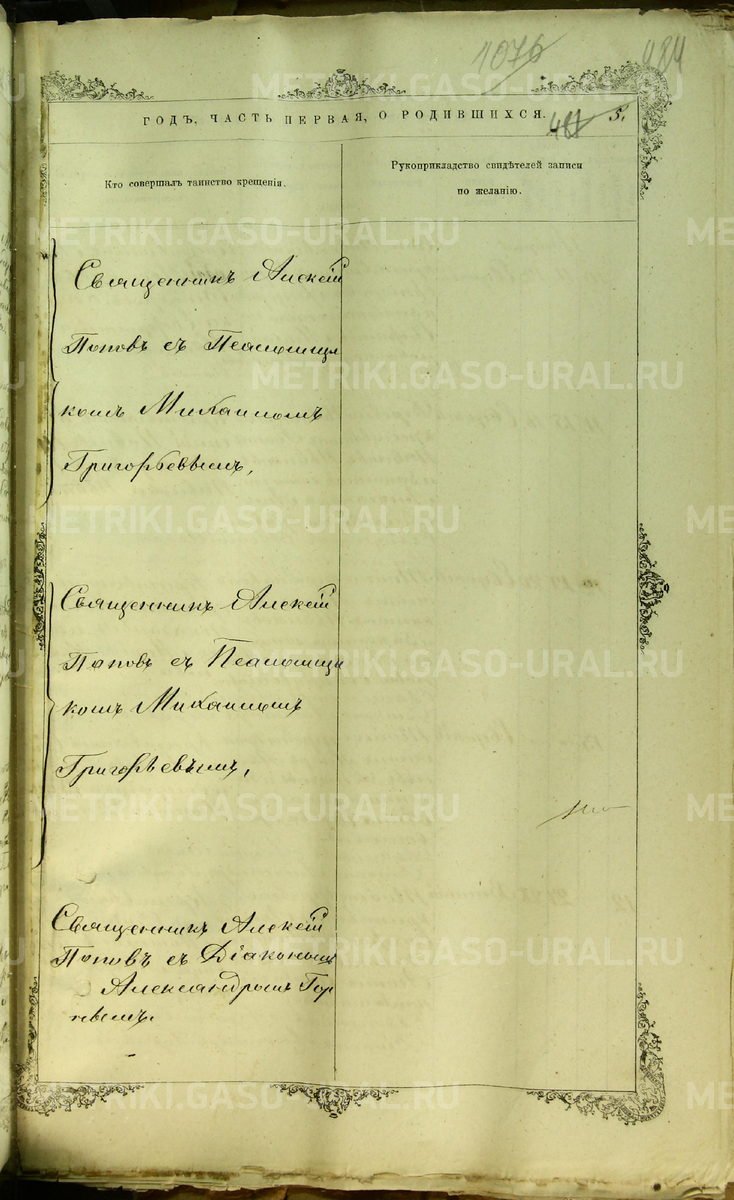 1076
484
ГОДЪ, ЧАСТЬ ПЕРВАЯ, О РОДИВШИХСЯ.
5.
Кто совершалъ таинство крещенія.
Рукоприкладство свидѣтелей записи
по желанію.
Священникъ Алексій
Поповъ съ Псаломщи
комъ Михаиломъ
Григорьевымъ,
Священникъ Алексій
Поповъ съ Псаломщи
комъ Михаиломъ
Григорьевымъ,
Священникъ Алексій
Поповъ съ Діакономъ
Александромъ
METRIKI.GASO-URAL.RU